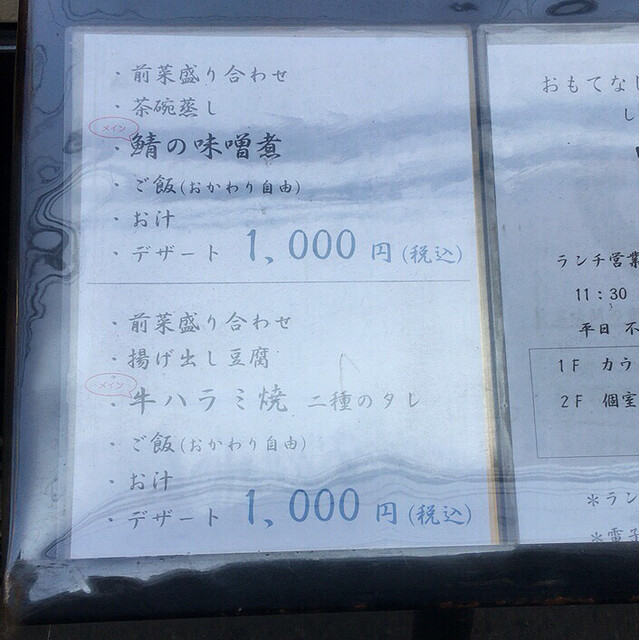 ・前菜盛り合わせ
・茶碗蒸し
メイン
・鯖の味噌煮
・ご飯(おかわり自由)
・お汁
・デザート 1,000円(税込)
・前菜盛り合わせ
・揚げ出し豆腐
メイン
・牛ハラミ焼 二種のタレ
・ご飯(おかわり自由)
・お汁
・デザート 1,000円(税込)
おもてなし
し
ランチ営業
11:30
平日 不
1F カウ
2F 個室
※ラン
※電子